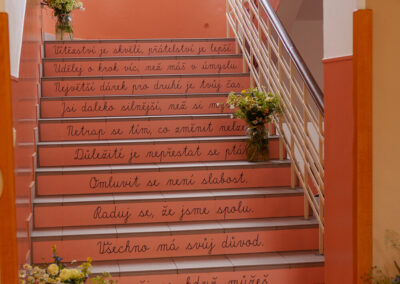 Vítězství je skvělé, přátelství je lepší.
Udělej o krok víc, než máš v úmyslu.
Největší dárek pro druhé je tvůj čas.
Jsi daleko silnější, než si
Netrap se tím, co změnit nelze.
Důležité je nepřestat se
Omluvit se není slabost.
Raduj se, že jsme spolu.
Všechno má svůj důvod.
když můžeš